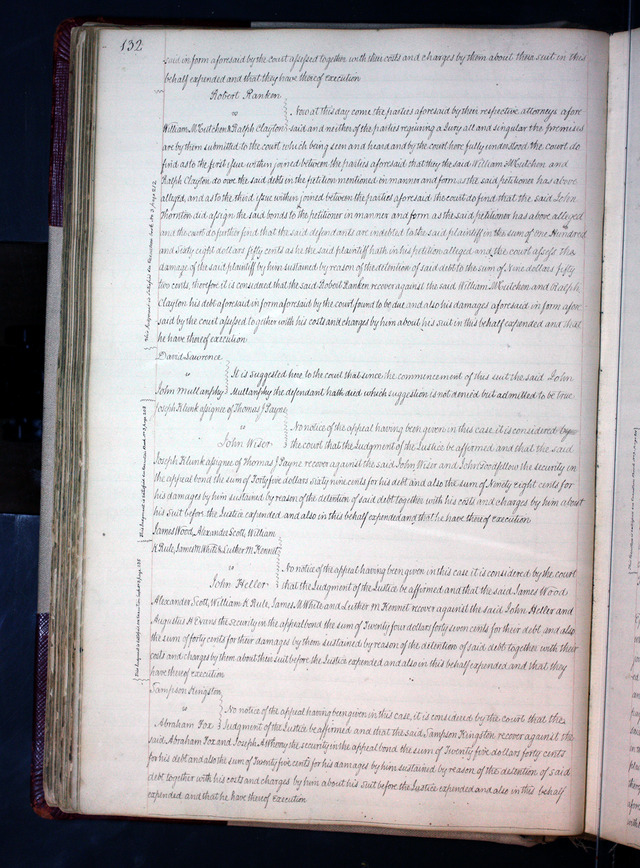 132
said in form aforesaid by the court assessed together with their costs and charges by them about their suit in this
behalf expended and that they have thereof execution
Robert Ranken
vs } Now at this day come the parties aforesaid by their respective attorneys afore
William McCutchen & Ralph Clayton } said and neither of the parties requiring a Jury all and singular the premises
are by them submitted to the court which being seen and heard and by the court here fully understood the court do
find as to the first issue within joined between the parties aforesaid that they the said William McCutchen and
Ralph Clayton do owe the said debt in the petition mentioned in manner and form as the said petitioner has above
alleged, and as to the third issue within joined between the parties aforesaid the court do find that the said John
Thornton did assign the said bonds to the petitioner in manner and form as the said petitioner has above alleged
and the court do further find that the said defendants are indebted to the said plaintiff in the sum of One Hundred
and Sixty eight dollars fifty cents as he the said plaintiff hath in his petition alleged and the court assess the
damage of the said plaintiff by him sustained by reason of the detention of said debt to the sum of Nine dollars fifty
two cents, therefore it is considered that the said Robert Ranken recover against the said William McCutchen and Ralph
Clayton his debt aforesaid in form aforesaid by the court found to be due and also his damages aforesaid in form afore
said by the court assessed together with his costs and charges by him about his suit in this behalf expended and that
he have thereof execution
David Lawrence
vs } It is suggested here to the court that since the commencement of this suit the said John
John Mullanphy } Mullanphy the defendant hath died which suggestion is not denied but admitted to be true
Joseph Klunk assignee of Thomas J Payne
vs } No notice of the appeal having been given in this case it is considered by
John Wiser } the court that the Judgment of the Justice be affirmed and that the said
Joseph Klunk assignee of Thomas J Payne recover against the said John Wiser and John Goodfellow the security in
the appeal bond the sum of Forty five dollars sixty nine cents for his debt and also the sum of Ninety eight cents for
his damages by him sustained by reason of the detention of said debt together with his costs and charges by him about
his suit before the Justice expended and also in this behalf expended and that he have thereof execution
James Wood, Alexander Scott, William
K Rule, James M White & Luther M Kennet
vs } No notice of the appeal having been given in this case it is considered by the court
John Heller } that the Judgment of the Justice be affirmed and that the said James Wood
Alexander Scott, William K Rule, James M White and Luther M Kennet recover against the said John Heller and
Augustus H Evans the security in the appeal bond the sum of Twenty four dollars forty seven cents for their debt and also
the sum of forty cents for their damages by them sustained by reason of the detention of said debt together with their
costs and charges by them about their suit before the Justice expended and also in this behalf expended and that they
have thereof execution
Sampson Kingston
vs } No notice of the appeal having been given in this case, it is considered by the court that the
Abraham Fox } Judgment of the Justice be affirmed and that the said Sampson Kingston recover against the
said Abraham Fox and Joseph A the security in the appeal bond the sum of Twenty five dollars forty cents
for his debt and also the sum of Twenty five cents for his damages by him sustained by reason of the detention of said
debt together with his costs and charges by him about his suit before the Justice expended and also in this behalf
expended and that he have thereof execution